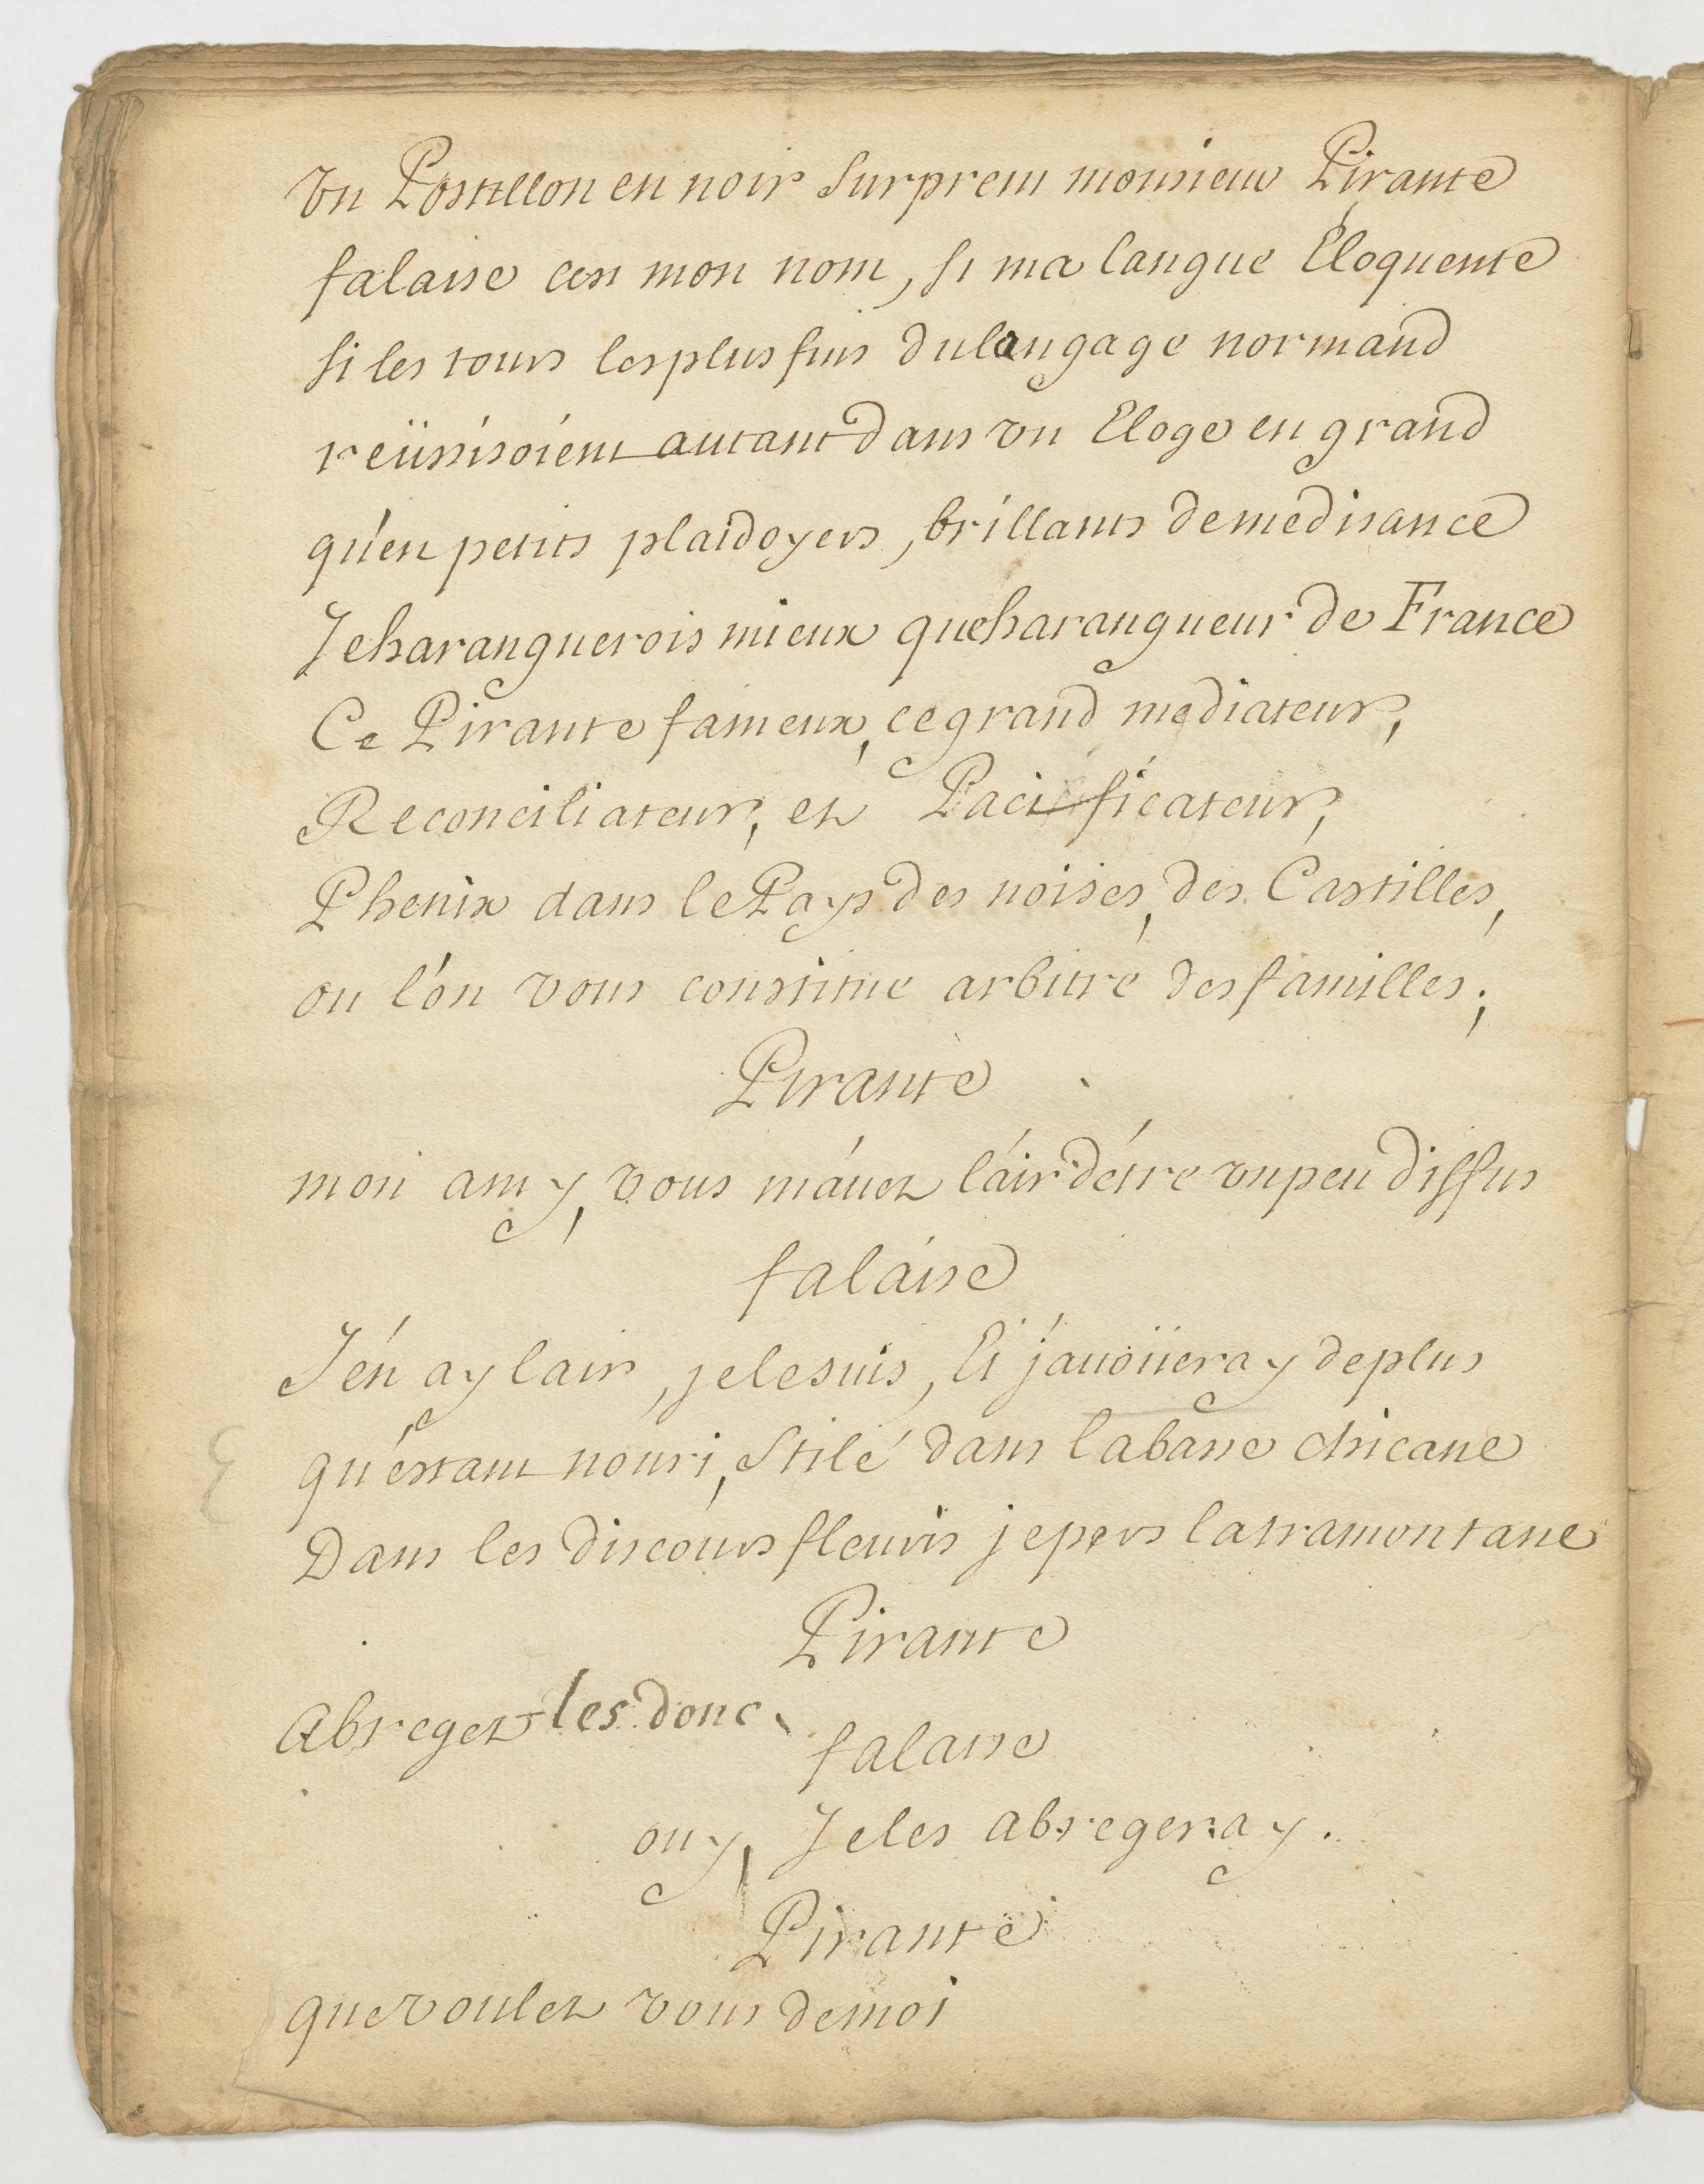 vn Postillon en noir surprent monsieur Pirante
falaise cest mon nom, si ma langue Eloquente
si les tours les plus fins du langage normand
reüssisoient autant dans vn Eloge en grand
qu'en petits plaidoyers, brillants de medisance
Je haranguerois mieux que harangueur de France
Ce Pirante fameux, ce grand mediateur,
Reconciliateur, et Pacificateur,
Phenix dans le Pays des noises, des Castilles,
ou l'on vous constitue arbitre des familles;
Pirante
mon amy, vous m'auez l'air d'etre vn peu diffus
falaise
J'en ay lair, je le suis, Et j'auoüeray de plus
qu'estant nouri, stilé dans la basse chicane
Dans les discours fleuris je pers la tramontane
Pirante
Abregez les donc
falaise
ouy, Je les abregeray.
Pirante
que voulez vous de moi